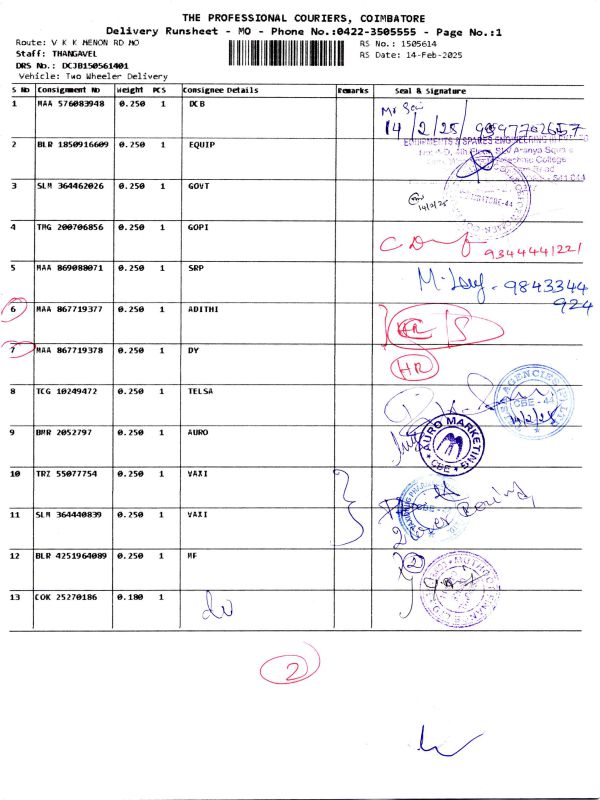 THE PROFESSIONAL COURIERS, COIMBATORE
Delivery Runsheet - MO - Phone No.:0422-3505555 - Page No.:1
Route: V K K MENON RD MO
RS No.: 1505614
Staff: THANGAVEL
RS Date: 14-Feb-2025
DRS No.: DCJB150561401
Vehicle: Two Wheeler Delivery
S No Consignment No Weight PCS Consignee Details Remarks Seal & Signature
1 MAA 576083948 0.250 1 DCB
14/2/25/ 9597702657
2 BLR 1850916609 0.250 1 EQUIP
3 SLM 364462026 0.250 1 GOVT
14/2/25
4 TMG 200706856 0.250 1 GOPI
9344441221
5 MAA 869088071 0.250 1 SRP
9843344
924
6 MAA 867719377 0.250 1 ADITHI
7 MAA 867719378 0.250 1 DY
HR
8 TCG 10249472 0.250 1 TELSA
AGENCIES
CBE - 44
14/2/25
9 BMR 2052797 0.250 1 AURO
AURO MARKETING
CBE
10 TRZ 55077754 0.250 1 VAXI
11 SLM 364440839 0.250 1 VAXI
12 BLR 4251964089 0.250 1 MF
2
13 COK 25270186 0.180 1
2